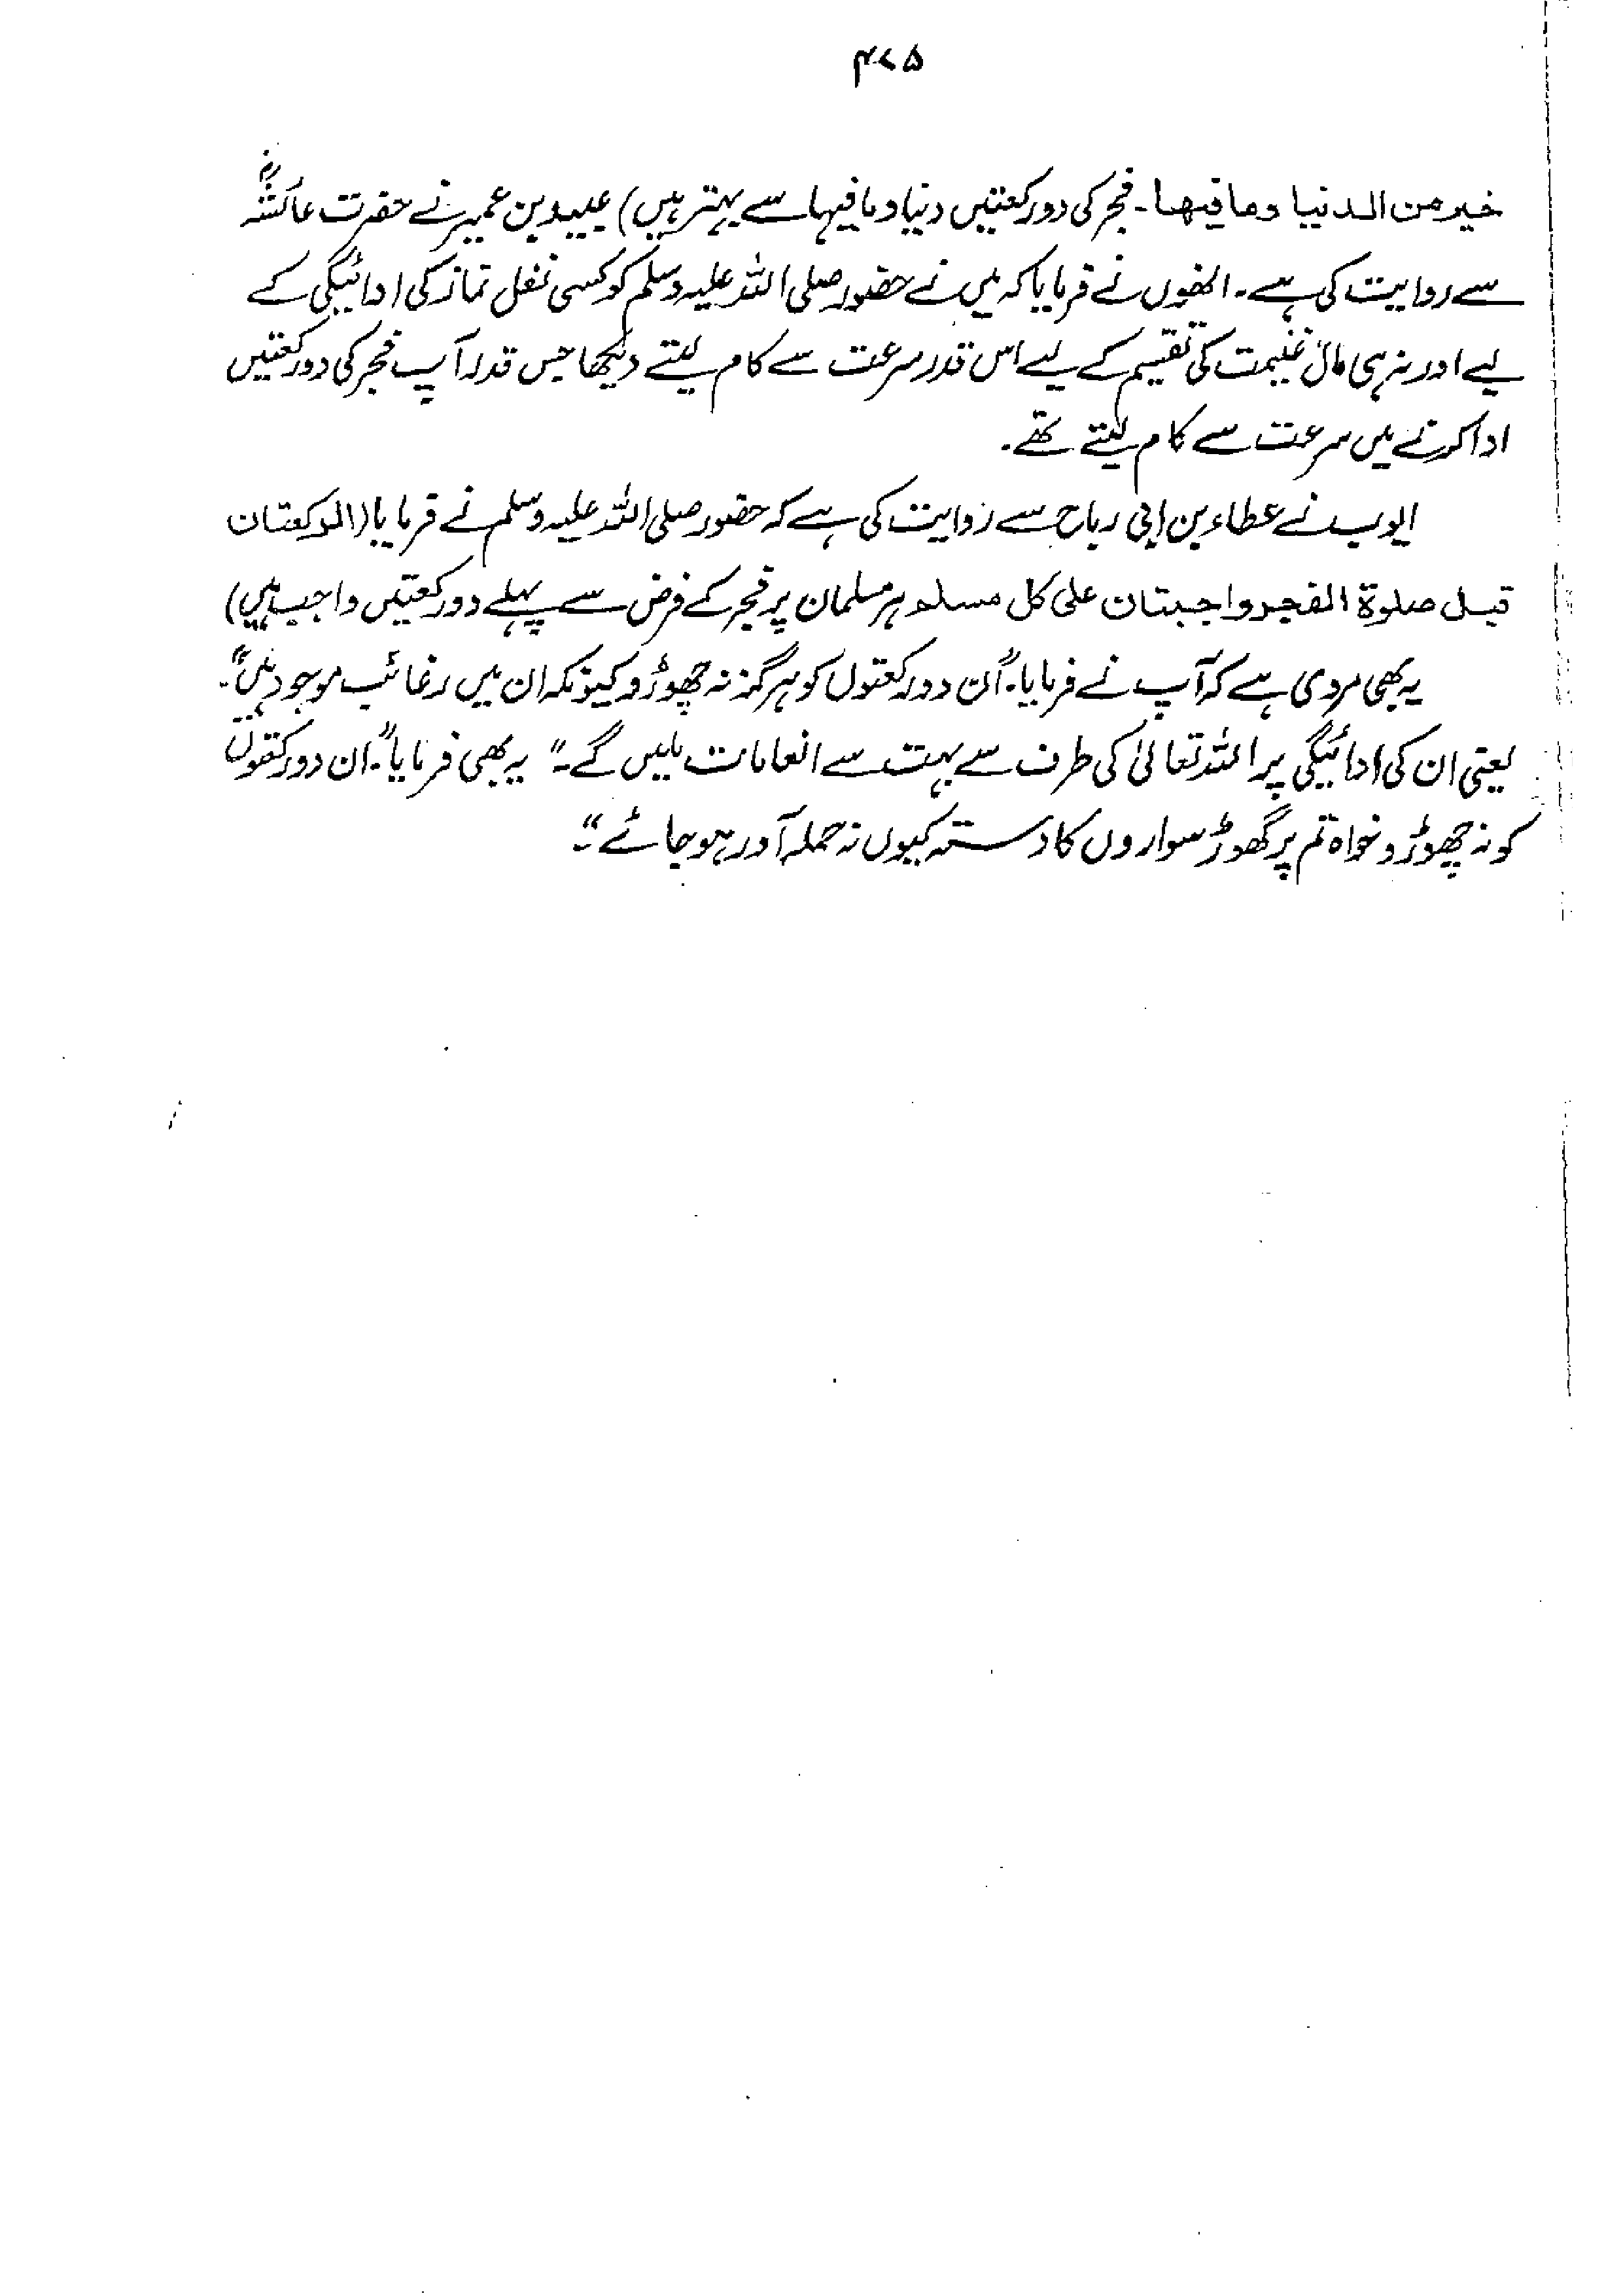 ۴۷۵
خیر من الدنیا وما فیھا۔ فجر کی دو رکعتیں دنیا و ما فیہا سے بہتر ہیں) عبید بن عمیر نے حضرت عائشہؓ
سے روایت کی ہے۔ انھوں نے فرمایا کہ میں نے حضور صلی اللہ علیہ وسلم کو کسی نفل نماز کی ادائیگی کے
لیے اور نہ ہی مال غنیمت کی تقسیم کے لیے اس قدر سرعت سے کام لیتے دیکھا جس قدر آپ فجر کی دو رکعتیں
ادا کرنے میں سرعت سے کام لیتے تھے۔
ایوب نے عطاء بن ابی رباح سے روایت کی ہے کہ حضور صلی اللہ علیہ وسلم نے فرمایا (الرکعتان
قبل صلوۃ الفجر واجبتان علی کل مسلم ہر مسلمان پر فجر کے فرض سے پہلے دو رکعتیں واجب ہیں)
یہ بھی مروی ہے کہ آپ نے فرمایا۔ "ان دو رکعتوں کو ہرگز نہ چھوڑو کیونکہ ان میں رغائب موجود ہیں"۔
یعنی ان کی ادائیگی پر اللہ تعالیٰ کی طرف سے بہت سے انعامات ملیں گے۔" یہ بھی فرمایا"۔ ان دو رکعتوں
کو نہ چھوڑو خواہ تم پر گھوڑ سواروں کا دستہ کیوں نہ حملہ آور ہو جائے"۔